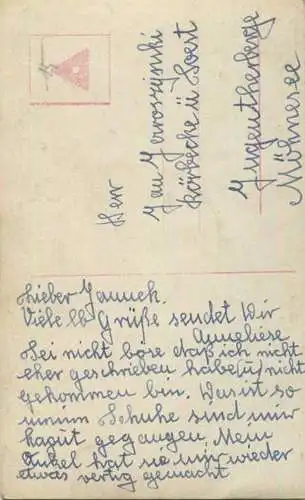 Herr
Jan Jaroszynski
Körbecke ü Soest
Jugentherberge
Möhnesee
Lieber Jannek.
Viele lb Grüße sendet Dir
Anneliese
Sei nicht böse daß ich nicht
eher geschrieben habe(u) nicht
gekommen bin. Das ist so
meine Schuhe sind mir
kaput gegangen, Mein
Onkel hat sie mir wieder
etwas vertig gemacht